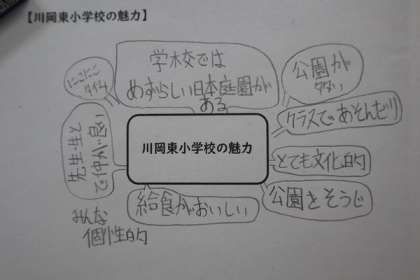 【川岡東小学校の魅力】
学校では
めずらしい日本庭園が
ある
公園が
多い
クラスであそんだり
とても文化的
公園をそうじ
給食がおいしい
みんな
個性的
先生・生と
で仲が良い
にこにこ
タイム
川岡東小学校の魅力